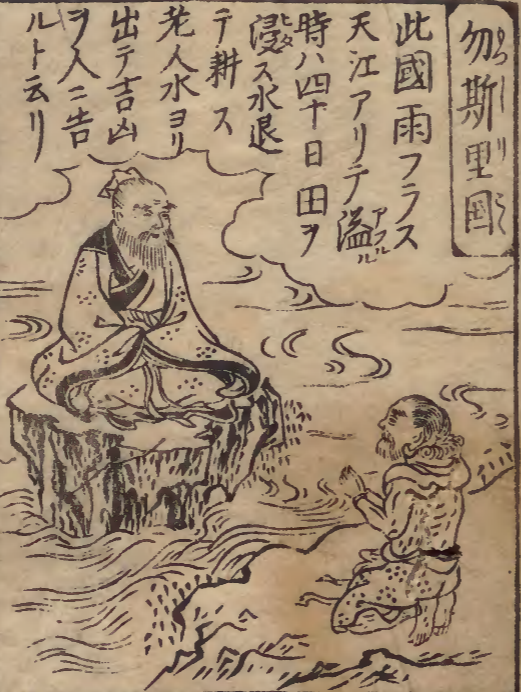 勿斯里國
此國雨フラス
天江アリテ溢アフルル
時ハ四十日田ヲ
浸ス水退
テ耕ス
老人水ヨリ
出テ吉凶
ヲ人ニ告
ルト云リ